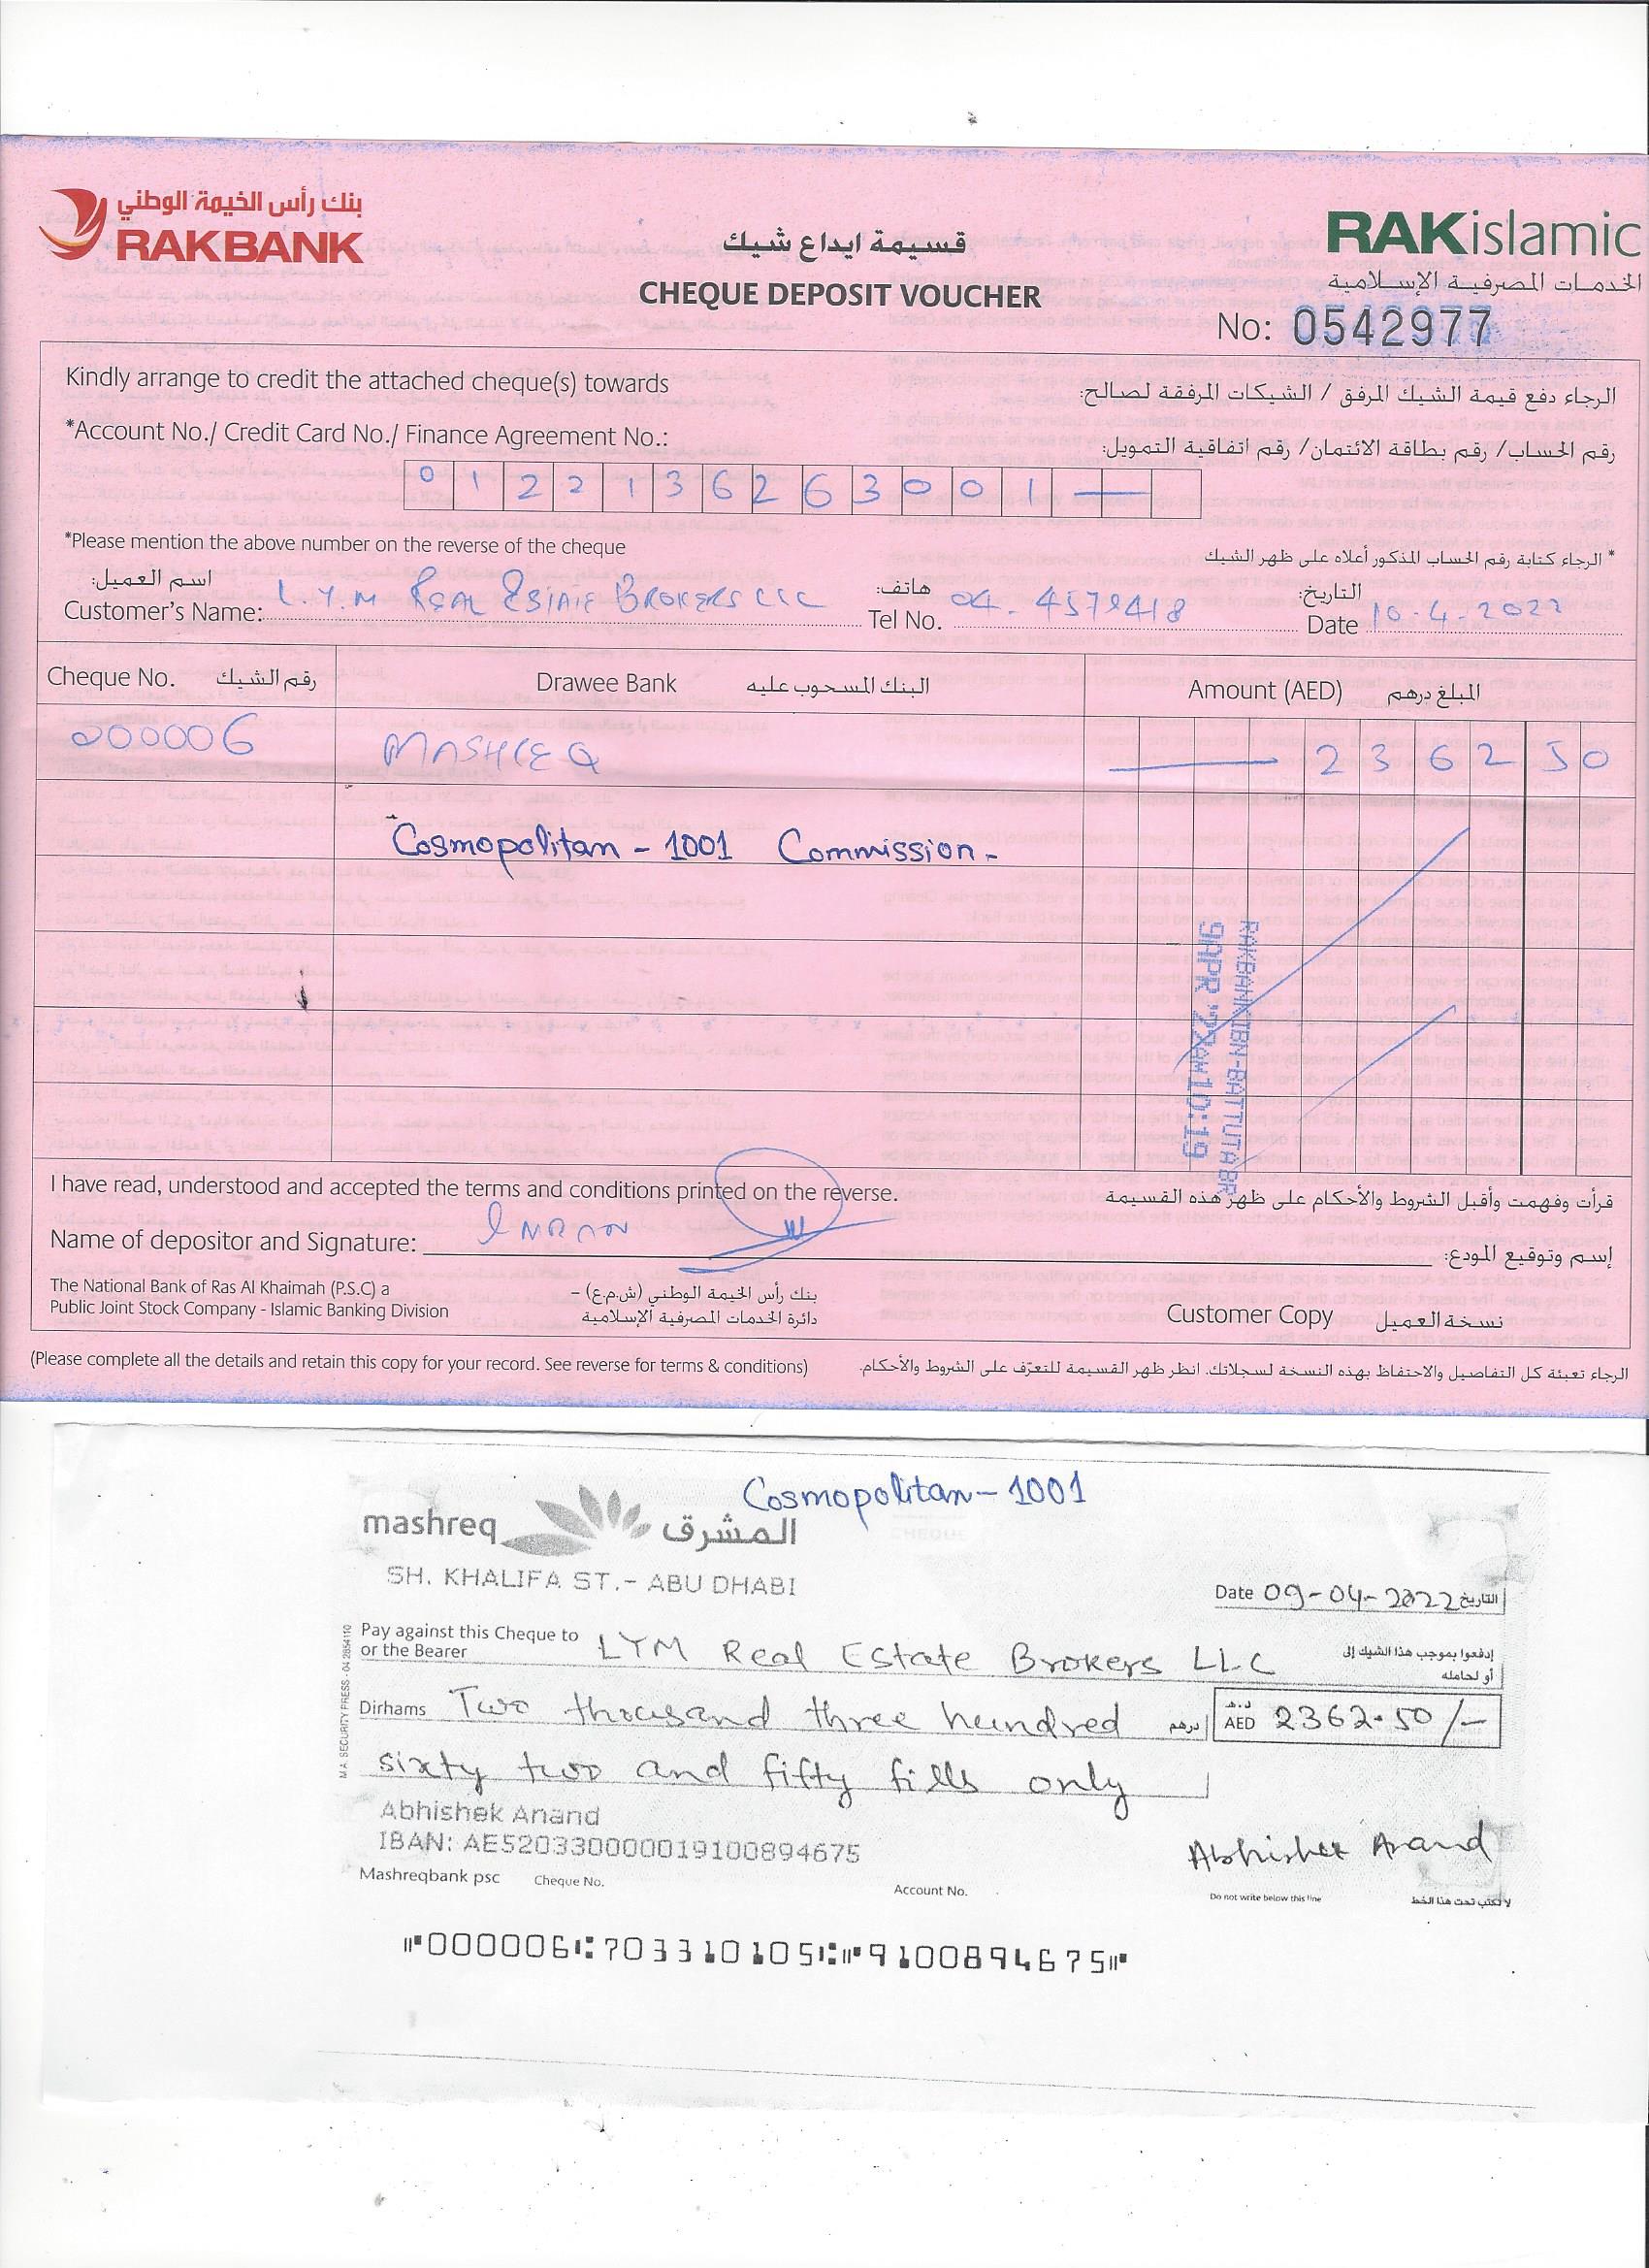 بنك رأس الخيمة الوطني
RAKBANK
قسيمة ايداع شيك
CHEQUE DEPOSIT VOUCHER
RAKislamic
الخدمات المصرفية الإسلامية
No: 0542977
Kindly arrange to credit the attached cheque(s) towards
الرجاء دفع قيمة الشيك المرفق / الشيكات المرفقة لصالح:
*Account No./ Credit Card No./ Finance Agreement No.:
رقم الحساب/ رقم بطاقة الائتمان/ رقم اتفاقية التمويل:
0 1 2 2 1 3 6 2 6 3 0 0 1 —
*Please mention the above number on the reverse of the cheque
* الرجاء كتابة رقم الحساب المذكور أعلاه على ظهر الشيك
اسم العميل: هاتف: التاريخ:
Customer's Name: L.Y.M REAL ESTATE BROKERS LLC Tel No. 04. 4579418 Date 10-4-2022
Cheque No. رقم الشيك Drawee Bank البنك المسحوب عليه Amount (AED) المبلغ درهم
000006 MASHREQ — 2 3 6 2 50
Cosmopolitan - 1001 Commission -
RAKBANK IBN-BATTUTA BR
9APR '22AM10:19
I have read, understood and accepted the terms and conditions printed on the reverse.
قرأت وفهمت وأقبل الشروط والأحكام على ظهر هذه القسيمة
Name of depositor and Signature: IMRAN
إسم وتوقيع المودع:
The National Bank of Ras Al Khaimah (P.S.C) a
Public Joint Stock Company - Islamic Banking Division
بنك رأس الخيمة الوطني (ش.م.ع) –
دائرة الخدمات المصرفية الإسلامية
Customer Copy نسخة العميل
(Please complete all the details and retain this copy for your record. See reverse for terms & conditions)
الرجاء تعبئة كل التفاصيل والاحتفاظ بهذه النسخة لسجلاتك. انظر ظهر القسيمة للتعرّف على الشروط والأحكام.
Cosmopolitan - 1001
mashreq المشرق
CHEQUE
SH. KHALIFA ST.- ABU DHABI
Date 09-04-2022 التاريخ
Pay against this Cheque to
or the Bearer
LYM Real Estate Brokers LLC
إدفعوا بموجب هذا الشيك إلى
أو لحامله
Dirhams Two thousand three hundred درهم
د.هـ
AED 2362.50/-
sixty two and fifty fills only
Abhishek Anand
IBAN: AE520330000019100894675
Abhishek Anand
Mashreqbank psc Cheque No. Account No.
Do not write below this line لا تكتب تحت هذا الخط
M.A. SECURITY PRESS - 04 2854110
⑈000006⑆703310105⑆⑈9100894675⑈